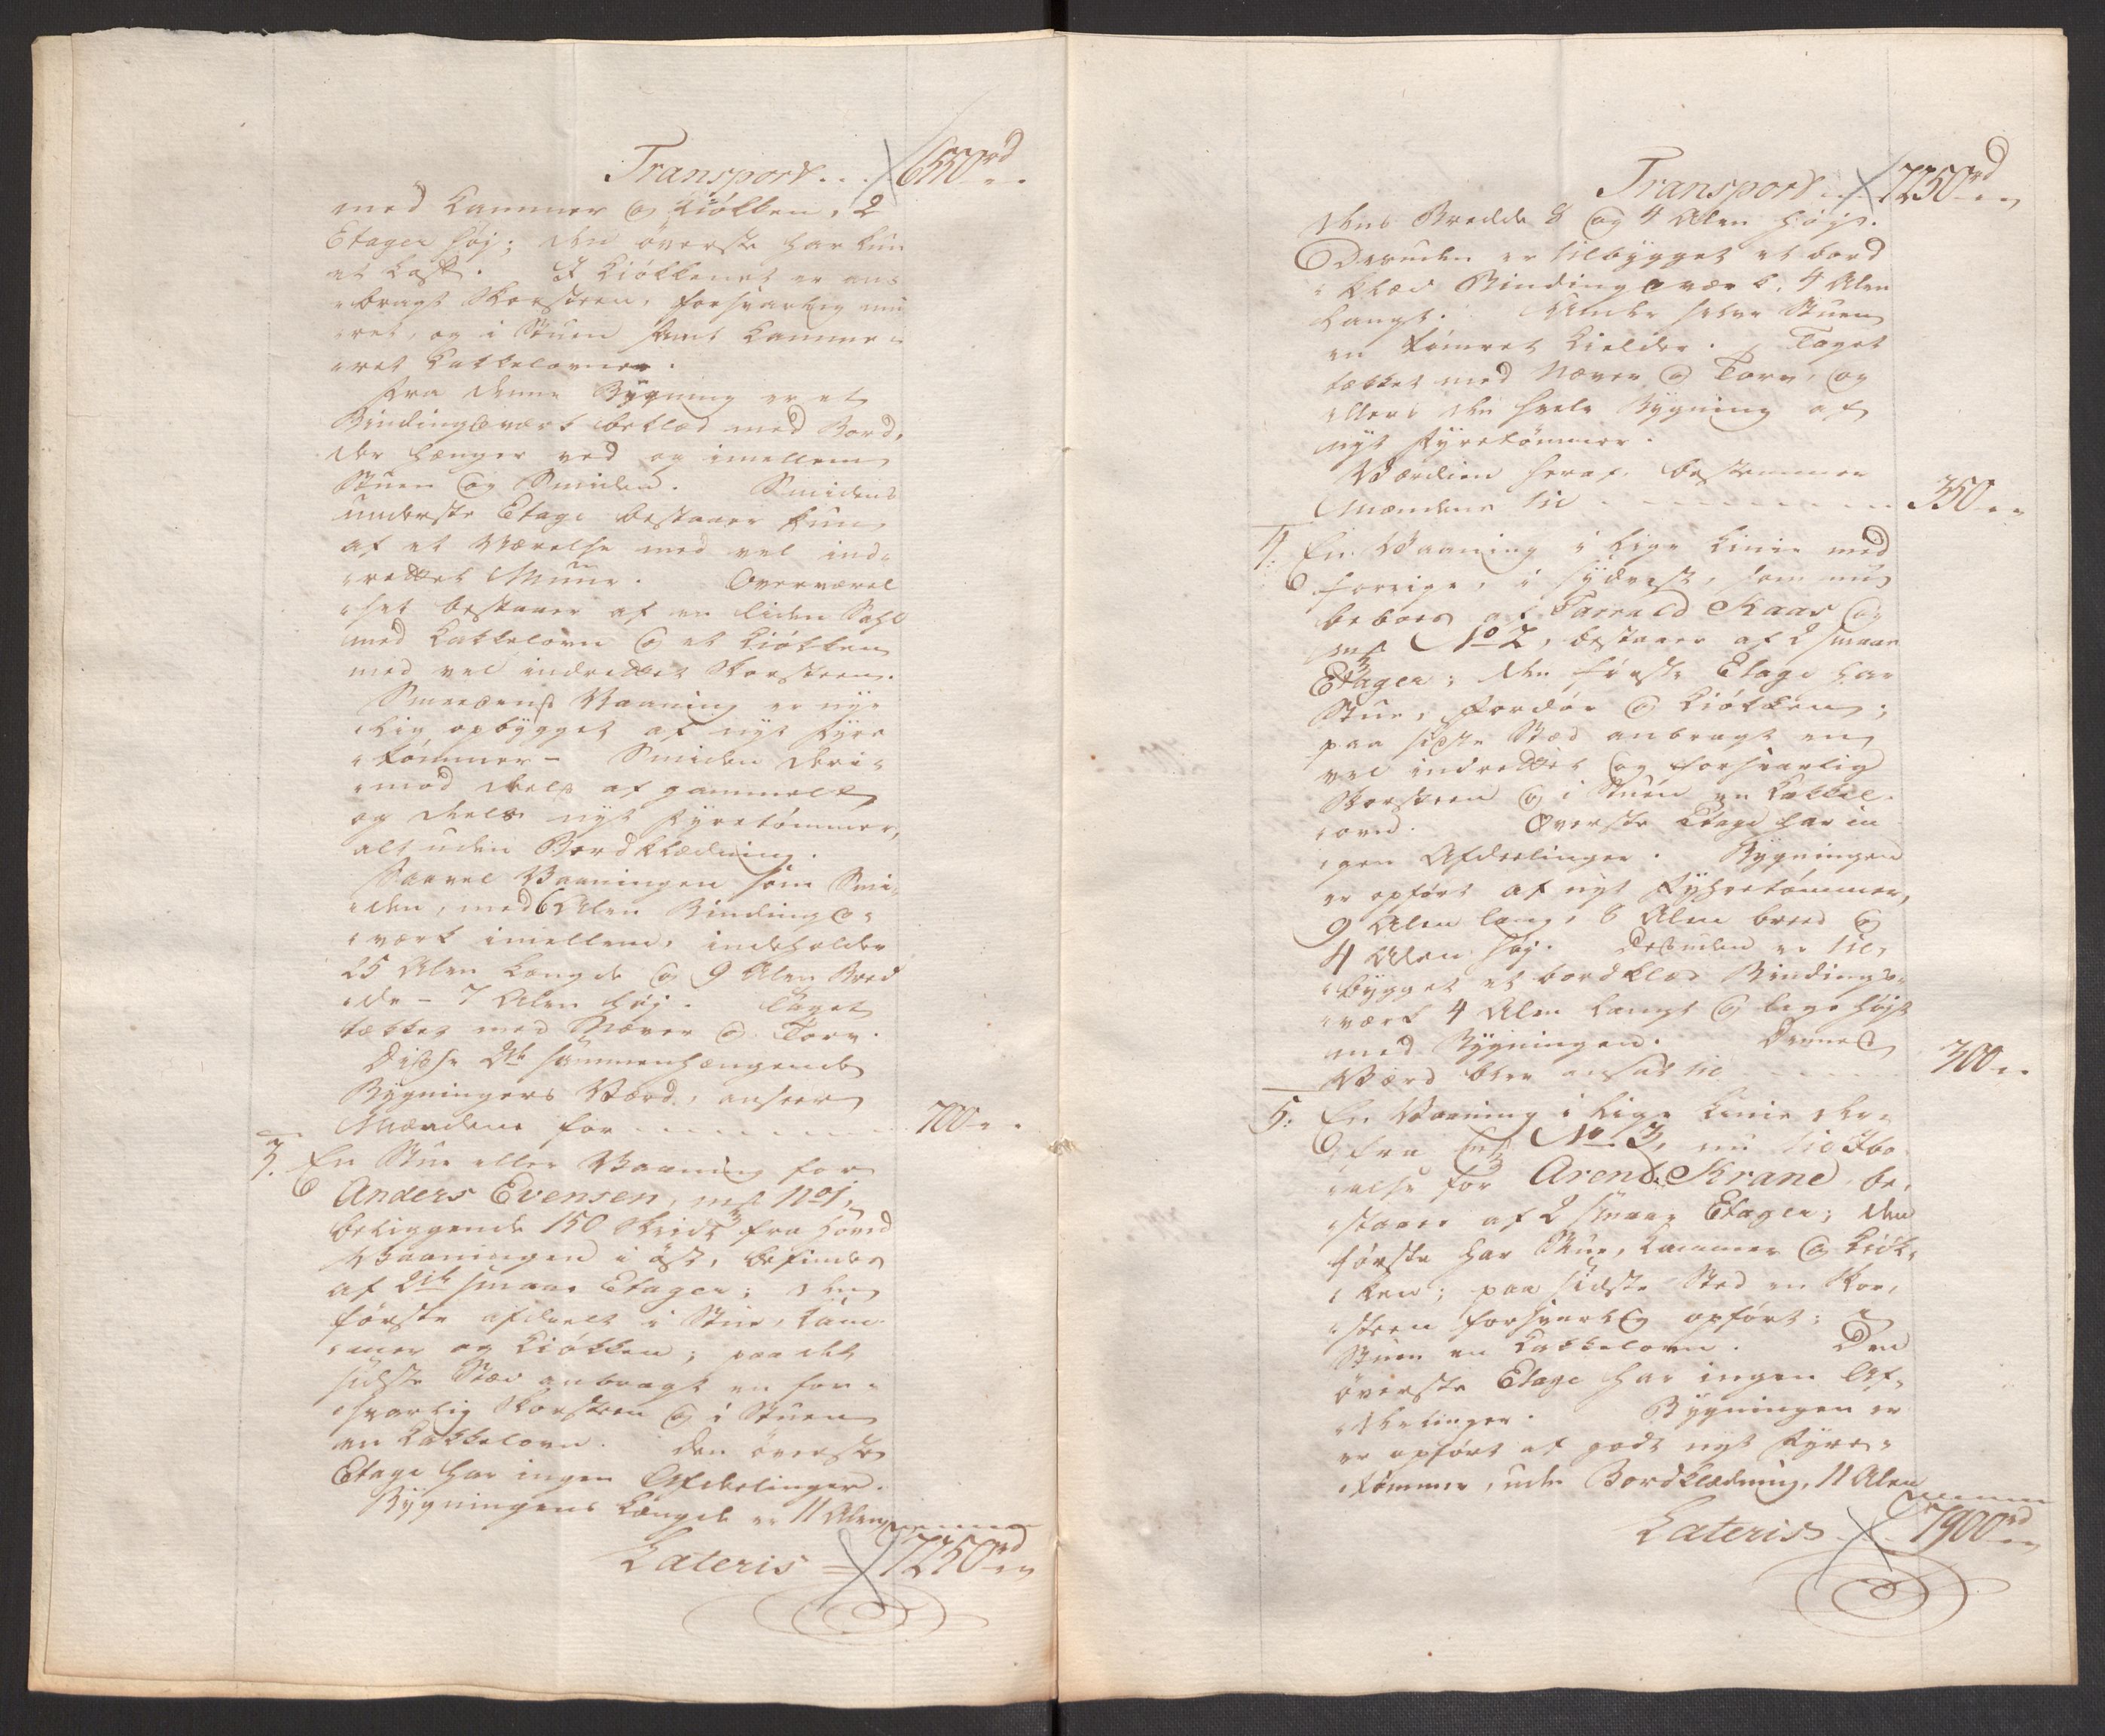 Transport . . . 6550 rd " "
med Kammer og Kiökken, 2
Etager höj; den överste har kun
et Loft. I Kiökkenet er an-
bragt Skorsteen, forsvarlig mu-
ret, og i Stuen samt Kamme-
ret Kakkelovner.
Fra denne Bygning er et
Bindingsværk beklæd med Bord,
der hænger ved og imellem
Stuen og Smiden. Smidens
underste Etage bestaaer kun
af et Værelse med vel ind-
rettet Muur. Overværel-
set bestaaer af en liden Sahl
med Kakkelovn og et Kiökken
med vel indrettet Skorsteen.
Vaaning er nye-
lig opbygget af nyt Fyre-
tömmer – Smiden deri-
mod deels af gammelt
og deels nyt Fyretömmer,
alt uden Bordklædning.
Saavel Vaaningen som Smi-
den, med 6 Alen Bindings-
værk imellem, indeholder
25 Alen Længde og 9 Alen Bred-
de – 7 Alen höj. Taget
tækket med Næver og Torv.
Disse 2de sammenhængende
Bygningers Værd, anseer
Mændene for . . . 700 " "
3. En Stue eller Vaaning for
Anders Evensen, No 1,
beliggende 150 Skridt fra Hoved
Vaaningen i öst, befindes
af 2de smaae Etager; den
förste afdeelt i Stue, Kam-
mer og Kiökken; paa det
sidste Stæd anbragt en for-
svarlig Skorsteen og i Stuen
en Kakkelovn. Den överste
Etage har ingen Afdelinger.
Bygningens Længde er 11 Alen
Lateris = 7250 rd " "
Transport . . . 7250 rd " "
dens Bredde 8 og 4 Alen höy.
Desuden er tilbygget et bord-
klæd Bindingsværk, 4 Alen
langt. Under selve Stuen
en tömret Kielder. Taget
tækket med Næver og Torv, og
ellers den heele Bygning af
nyt Fyretömmer.
Værdien heraf bestemmer
Mændene til . . . 350 " "
4. En Vaaning i lige Linie med
forrige, i sydvest, som nu
beboes af Tarrald Kaas og
No 2, bestaaer af 2 smaae
Etager; den förste Etage har
Stue, Fordör og Kiökken;
paa sidste Stæd anbragt en
vel indrettet og forsvarlig
Skorsteen og i Stuen en Kakkel-
ovn. Överste Etage har in-
gen Afdeelinger. Bygningen
er opfört af nyt Fyhretömmer,
9 Alen lang, 8 Alen breed og
4 Alen höj. Desuden er til-
bygget et bordklæd Bindings-
værk 4 Alen langt og lige höjt
med Bygningen. Dennes
Værd blev ansat til . . . 300 " "
5. En Vaaning i lige Linie der-
fra No 3, nu til Ibo-
else for Arent Krane, be-
staaer af 2 smaae Etager; den
förste har Stue, Kammer og Kiök-
ken; paa sidste Sted en Skor-
steen forsvarlig opfört; i
Stuen en Kakkelovn. Den
överste Etage har ingen Af-
delinger. Bygningen er
er opfört af godt nyt Fyre-
tömmer, uden Bordklædning, 11 Alen
Lateris . . . 7900 rd " "